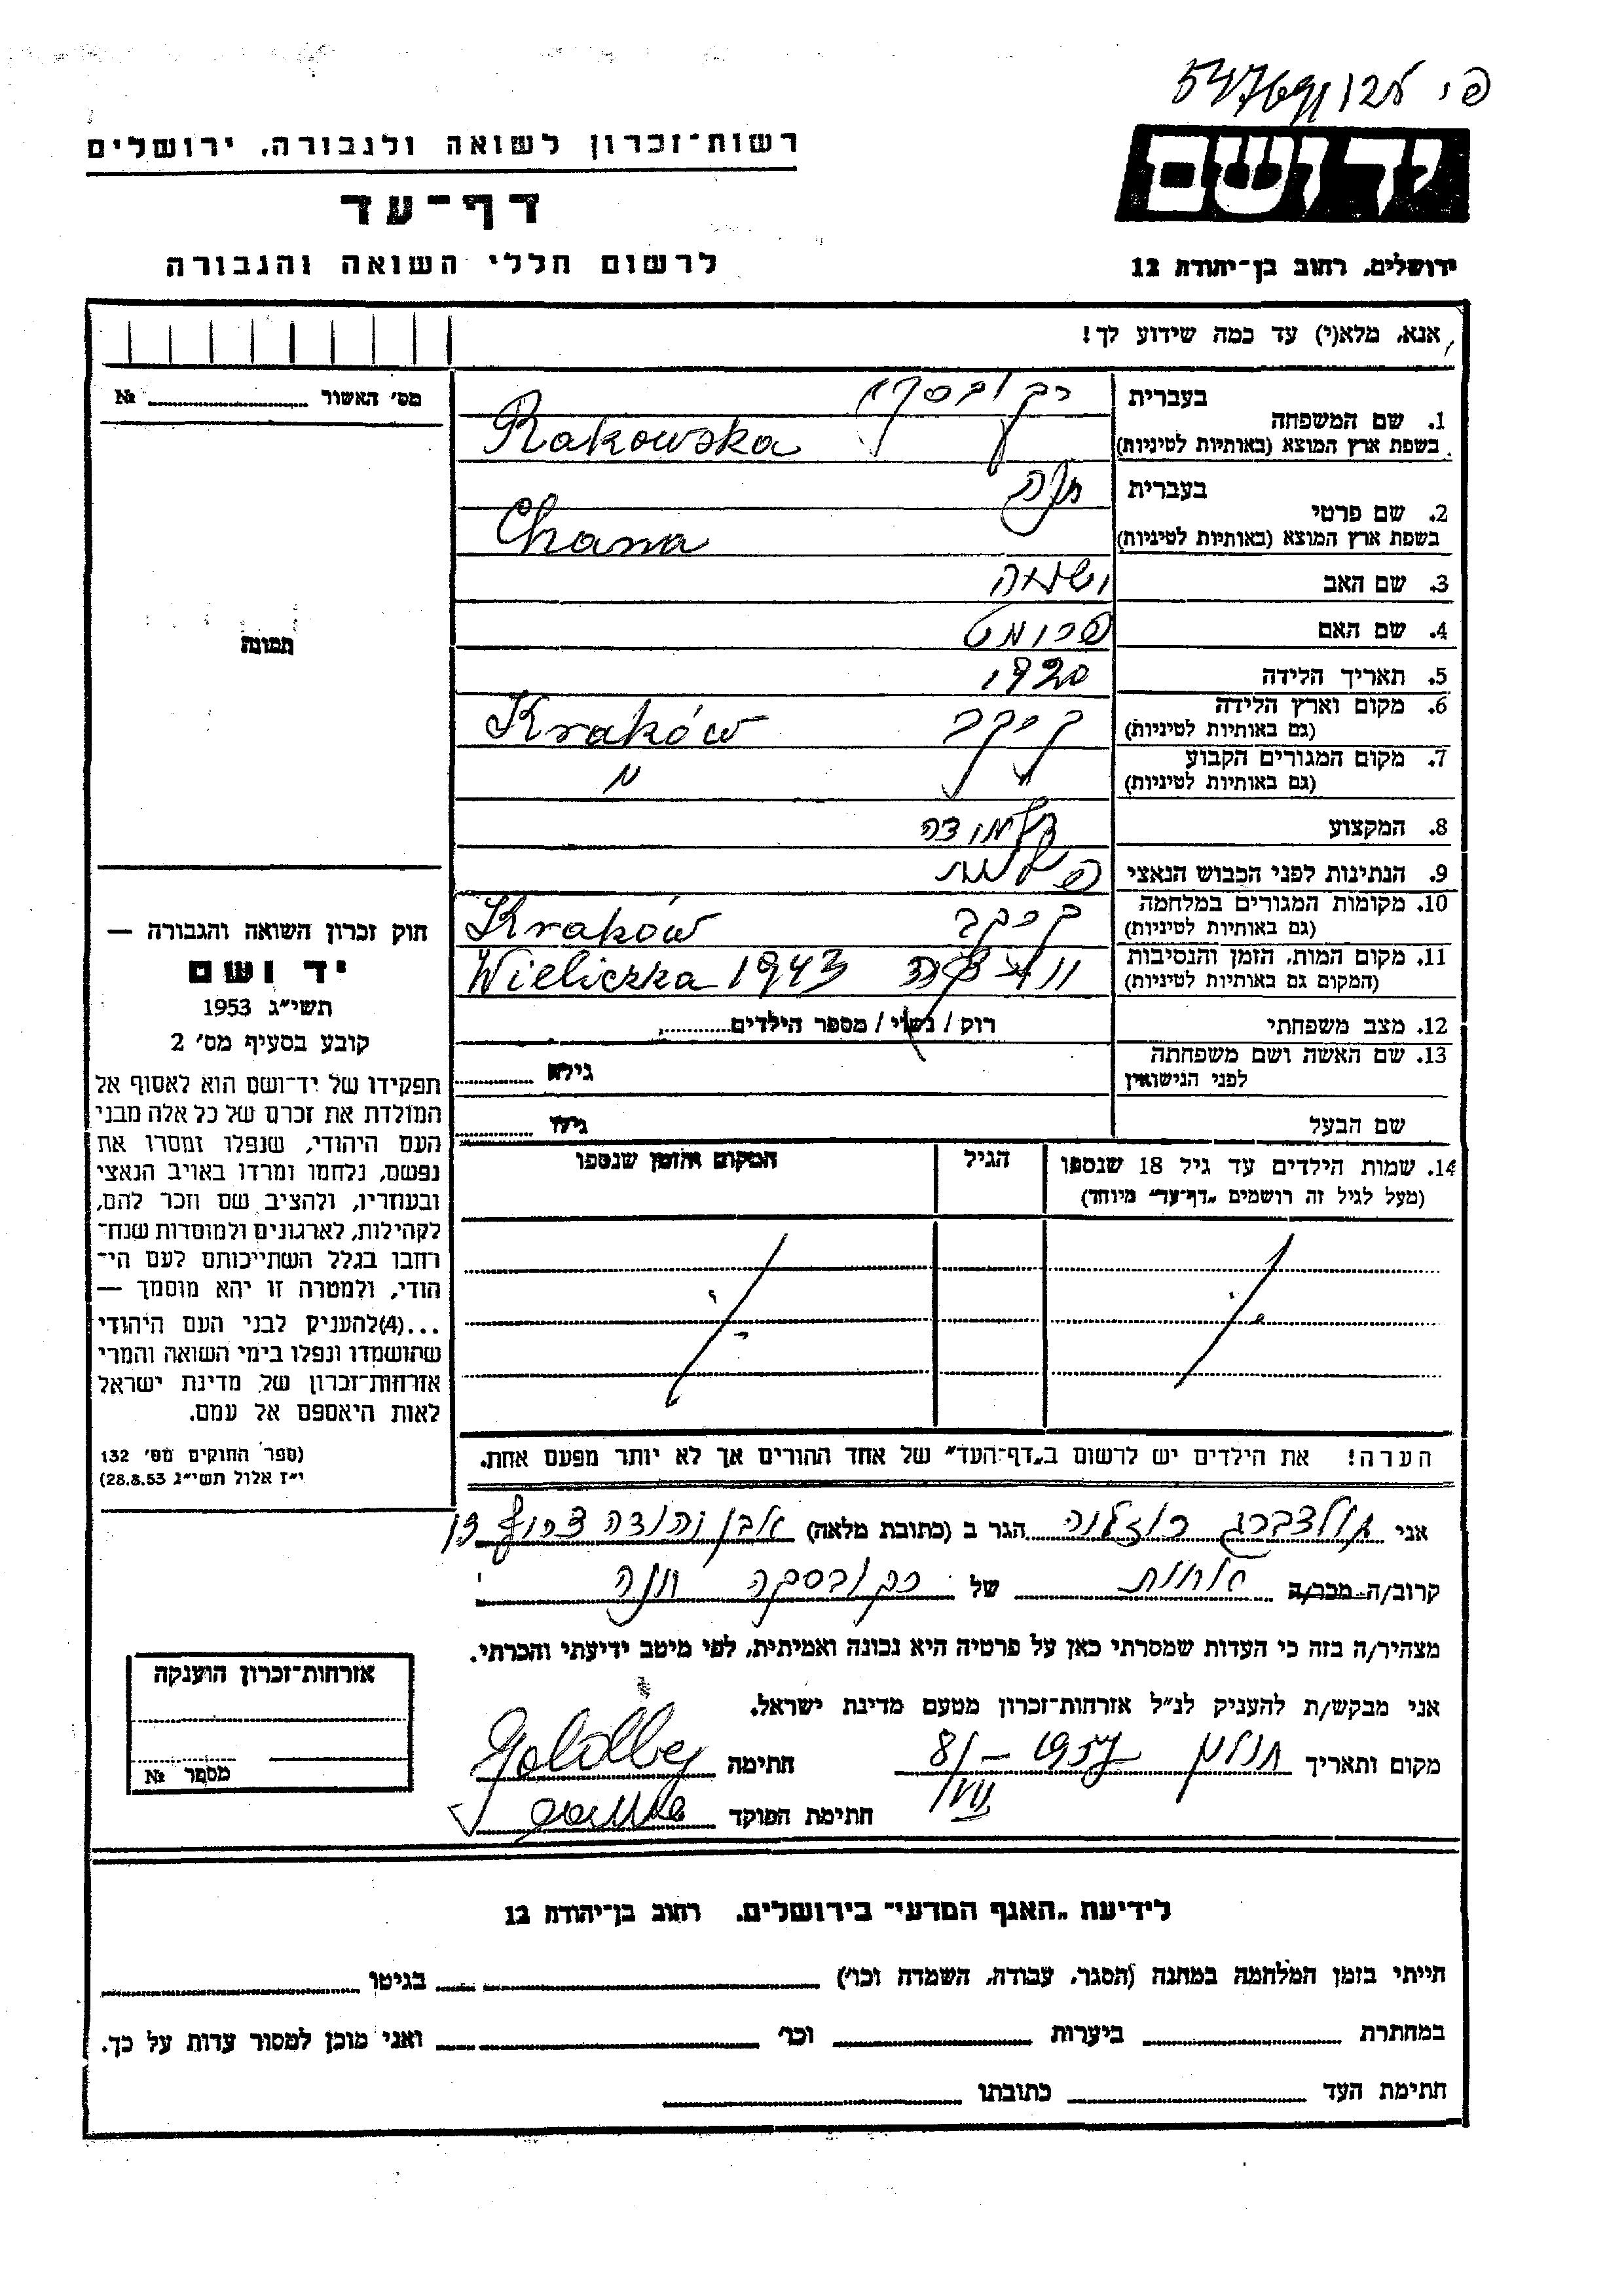 רשות־זכרון לשואה ולגבורה, ירושלים
דף־עד
לרשום חללי השואה והגבורה
יד ושם
ירושלים, רחוב בן־יהודה 12
אנא, מלא(י) עד כמה שידוע לך!
מס׳ האשור № 
תמונה
1. שם המשפחה
בעברית
בשפת ארץ המוצא (באותיות לטיניות) Rakowska
2. שם פרטי
בעברית חנה
בשפת ארץ המוצא (באותיות לטיניות) Chana
3. שם האב
4. שם האם
5. תאריך הלידה 1920
6. מקום וארץ הלידה (גם באותיות לטיניות) קרקב Kraków
7. מקום המגורים הקבוע (גם באותיות לטיניות) "
8. המקצוע
9. הנתינות לפני הכבוש הנאצי
10. מקומות המגורים במלחמה (גם באותיות לטיניות) קרקב Kraków
11. מקום המות, הזמן והנסיבות (המקום גם באותיות לטיניות) Wieliczka 1943
12. מצב משפחתי רוק / נשוי / מספר הילדים
13. שם האשה ושם משפחתה לפני הנישואין גילא
שם הבעל גילו
14. שמות הילדים עד גיל 18 שנספו (מעל לגיל זה רושמים „דף־עד” מיוחד)
הגיל
המקום והזמן שנספו
הערה! את הילדים יש לרשום ב„דף־העד” של אחד ההורים אך לא יותר מפעם אחת.
חוק זכרון השואה והגבורה —
יד ושם
תשי״ג 1953
קובע בסעיף מס׳ 2
תפקידו של יד־ושם הוא לאסוף אל
המולדת את זכרם של כל אלה מבני
העם היהודי, שנפלו ומסרו את
נפשם, נלחמו ומרדו באויב הנאצי
ובעוזריו, ולהציב שם וזכר להם,
לקהילות, לארגונים ולמוסדות שנח־
רחבו בגלל השתייכותם לעם הי־
הודי, ולמטרה זו יהא מוסמך —
...(4)להעניק לבני העם היהודי
שהושמדו ונפלו בימי השואה והמרי
אזרחות־זכרון של מדינת ישראל
לאות היאספם אל עמם.
(ספר החוקים מס׳ 132
י״ז אלול תשי״ג 28.8.53)
אני גולדברג הגר ב (כתובת מלאה) אבן יהודה
קרוב/ה מכר/ה של רקובסקה חנה
מצהיר/ה בזה כי העדות שמסרתי כאן על פרטיה היא נכונה ואמיתית, לפי מיטב ידיעתי והכרתי.
אני מבקש/ת להעניק לנ״ל אזרחות־זכרון מטעם מדינת ישראל.
מקום ותאריך 8/VII – 1957 חתימה
חתימת הפוקד
אזרחות־זכרון הוענקה
מספר №
לידיעת „האגף המדעי” בירושלים, רחוב בן־יהודה 12
הייתי בזמן המלחמה במחנה (הסגר, עבודה, השמדה וכו׳) בגיטו
במחתרת ביערות וכו׳ ואני מוכן למסור עדות על כך.
חתימת העד כתובתו